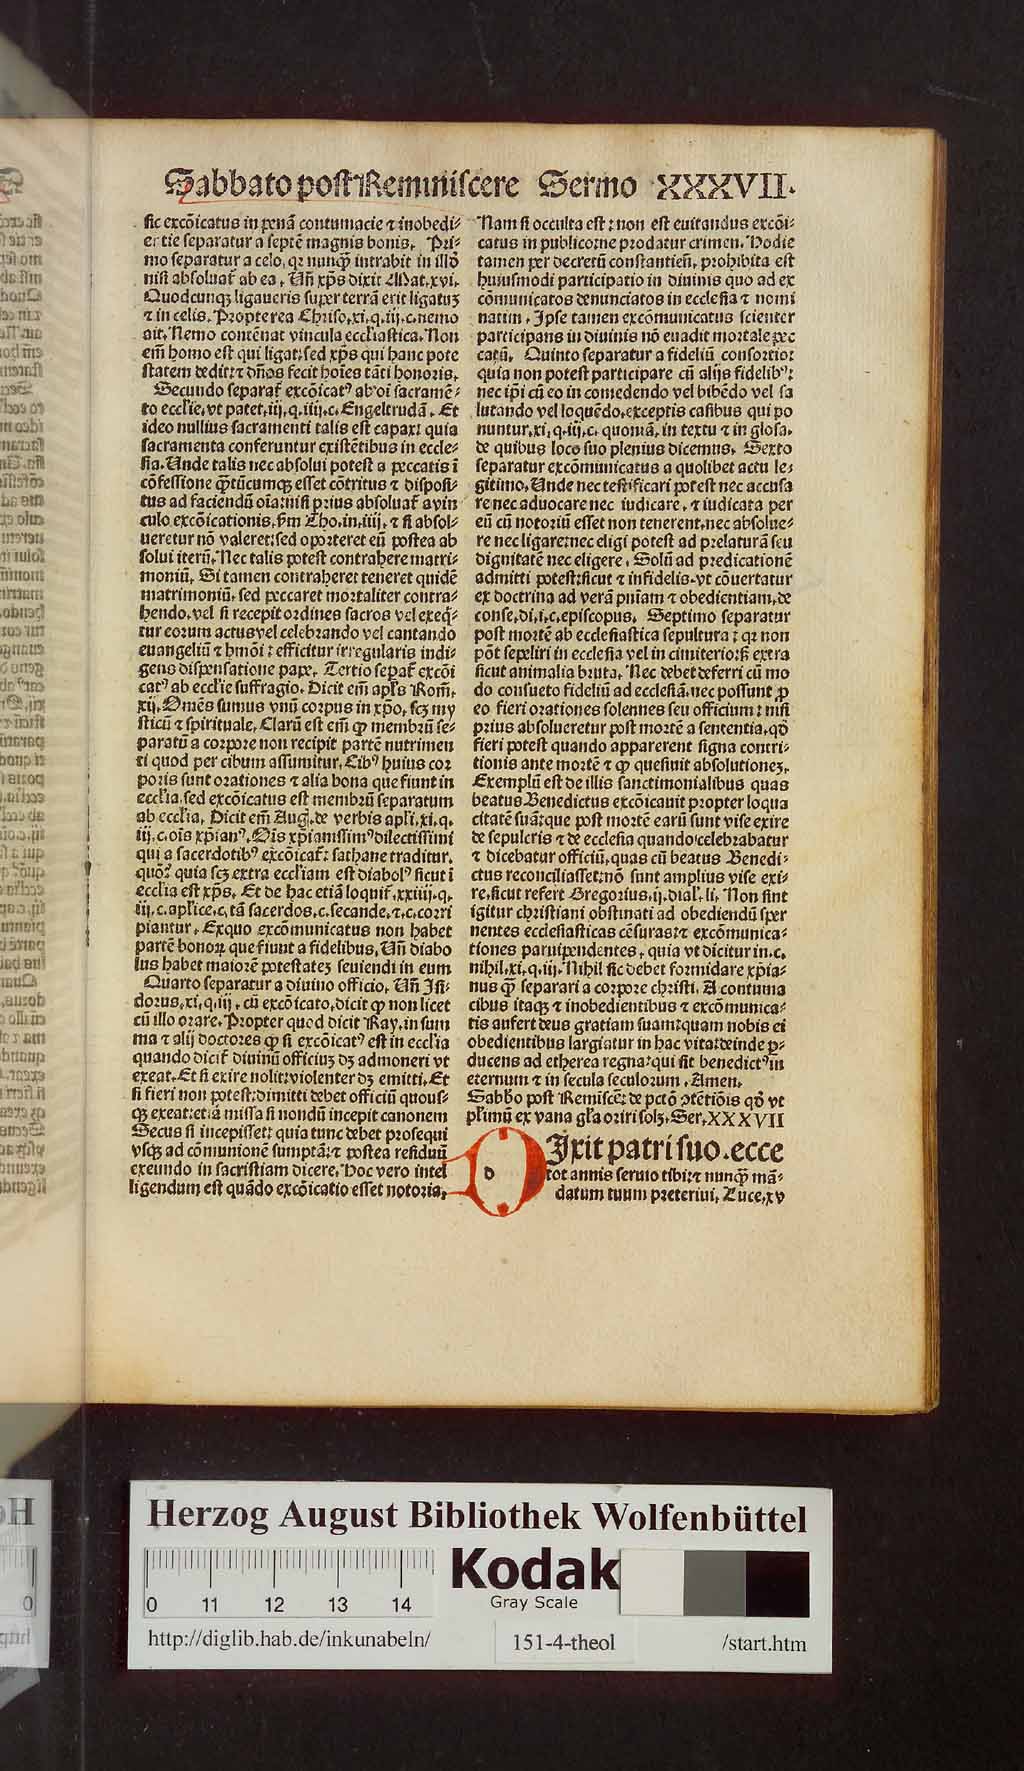 Sabbato post Reminiscere Sermo XXXVII.
sic excōicatus in penā contumacie ⁊ inobedi-
entie separatur a septē magnis bonis. Pri-
mo separatur a celo, qꝛ nunqͣꝫ intrabit in illō
nisi absoluat̄ ab ea. Uñ xp̄s dixit Mat.xvi.
Quodcunqꝫ ligaueris super terrā erit ligatuꝫ
⁊ in celis. Propterea Chriso.xi.q.iij.c.nemo
ait. Nemo contēnat vincula eccl̄iastica. Non
em̄ homo est qui ligat: sed xp̄s qui hanc pote
statem dedit: ⁊ dn̄s fecit hoīes tāti honoris.
Secundo separat̄ excōicatꝰ ab oī sacramē-
to eccl̄ie, vt patet.iij.q.iiij.c.Engeltrudā. Et
ideo nullius sacramenti talis est capax: quia
sacramenta conferuntur existētibus in eccle-
sia. Unde talis nec absolui potest a peccatis ī
cōfessione qͣꝫtūcumqꝫ esset cōtritus ⁊ disposi-
tus ad faciendū oīa: nisi prius absoluat̄ a vin
culo excōicationis. ẜm Tho.in.iiij. ⁊ si absol-
ueretur nō valeret: sed oporteret eū postea ab
solui iterū. Nec talis potest contrahere matri-
moniū. Si tamen contraheret teneret quidē
matrimoniū. sed peccaret mortaliter contra-
hendo. vel si recepit ordines sacros vel exeq̄-
tur eorum actus vel celebrando vel cantando
euangeliū ⁊ hmōi: efficitur irregularis indi-
gens dispensatione pape. Tertio sepat̄ excōi
catꝰ ab eccl̄ie suffragio. Dicit em̄ apl̄s Rom̄.
xij. Om̄es sumus vnū corpus in xp̄o, scꝫ my
sticū ⁊ spirituale. Clarū est em̄ ꝙ membrū se-
paratū a corpore non recipit partē nutrimen
ti quod per cibum assumitur. Cibꝰ huius cor
poris sunt orationes ⁊ alia bona que fiunt in
eccl̄ia. sed excōicatus est membrū separatum
ab eccl̄ia. Dicit em̄ Auḡ. de verbis apl̄i.xi.q.
iij.c.oīs xp̄ianꝰ. Oīs xp̄ianissimꝰ dilectissimi
qui a sacerdotibꝰ excōicat̄: sathane traditur.
quō? quia scꝫ extra eccl̄iam est diabolꝰ sicut ī
eccl̄ia est xp̄s. Et de hac etiā loquit̄.xxiiij.q.
iij.c.apl̄ice.c.tā sacerdos.c.secande.⁊.c.corri
piantur. Exquo excōmunicatus non habet
partē bonoꝝ que fiunt a fidelibus. Uñ diabo
lus habet maiorē potestateꝫ seuiendi in eum
Quarto separatur a diuino officio. Uñ Isi-
dorus.xi.q.iij. cū excōicato. dicit ꝙ non licet
cū illo orare. Propter quod dicit Ray. in sum
ma ⁊ alij doctores ꝙ si excōicatꝰ est in eccl̄ia
quando dicit̄ diuinū officiuꝫ dꝫ admoneri vt
exeat. Et si exire nolit: violenter dꝫ emitti. Et
si fieri non potest: dimitti debet officiū quous-
qꝫ exeat: etiā missa si nondū incepit canonem
Secus si incepisset: quia tunc debet prosequi
vsqꝫ ad cōmunionē sumptā: ⁊ postea residuū
exeundo in sacristiam dicere. Hoc vero intel
ligendum est quādo excōicatio esset notoria.
Nam si occulta est: non est euitandus excōi-
catus in publico: ne prodatur crimen. Hodie
tamen per decretū constantien̄. prohibita est
huiusmodi participatio in diuinis quo ad ex
cōmunicatos denunciatos in ecclesia ⁊ nomi
natim. Ipse tamen excōmunicatus scienter
participans in diuinis nō euadit mortale pec
catū. Quinto separatur a fideliū consortio:
quia non potest participare cū alijs fidelibꝰ:
nec ip̄i cū eo in comedendo vel bibēdo vel sa
lutando vel loquēdo. exceptis casibus qui po
nuntur.xi.q.iij.c. quoniā. in textu ⁊ in glosa.
de quibus loco suo plenius dicemus. Sexto
separatur excōmunicatus a quolibet actu le-
gitimo. Unde nec testificari potest nec accusa
re nec aduocare nec iudicare. ⁊ iudicata per
eū cū notoriū esset non tenerent. nec absolue-
re nec ligare: nec eligi potest ad prelaturā seu
dignitatē nec eligere. Solū ad predicationē
admitti potest: sicut ⁊ infidelis. vt cōuertatur
ex doctrina ad verā pn̄iam ⁊ obedientiam. de
conse.di.i.c.episcopus. Septimo separatur
post mortē ab ecclesiastica sepultura: qꝛ non
pōt sepeliri in ecclesia vel in cimiterio: sꝫ extra
sicut animalia bruta. Nec debet deferri cū mo
do consueto fideliū ad ecclesiā. nec possunt ꝓ
eo fieri orationes solennes seu officium: nisi
prius absolueretur post mortē a sententia. qd̄
fieri potest quando apparerent signa contri-
tionis ante mortē ⁊ ꝙ quesiuit absolutioneꝫ.
Exemplū est de illis sanctimonialibus quas
beatus Benedictus excōicauit propter loqua
citatē suā: que post mortē earū sunt vise exire
de sepulcris ⁊ de ecclesia quando celebrabatur
⁊ dicebatur officiū. quas cū beatus Benedi-
ctus reconciliasset: nō sunt amplius vise exi-
re. sicut refert Gregorius.ij.dial̄.li. Non sint
igitur christiani obstinati ad obediendū sper
nentes ecclesiasticas cēsuras: ⁊ excōmunica-
tiones paruipendentes. quia vt dicitur in.c.
nihil.xi.q.iij. Nihil sic debet formidare xp̄ia-
nus qͣꝫ separari a corpore christi. A contuma
cibus itaqꝫ ⁊ inobedientibus ⁊ excōmunica-
tis aufert deus gratiam suam: quam nobis ei
obedientibus largiatur in hac vita: deinde ꝑ-
ducens ad etherea regna: qui sit benedictꝰ in
eternum ⁊ in secula seculorum. Amen.
Sabb̄o post Remiscer̄: de pctō ꝯtētiōis qd̄ vt
pl̄imū ex vana gl̄a oriri solꝫ. Ser.XXXVII
DIxit patri suo. ecce
tot annis seruio tibi: ⁊ nunqͣꝫ mā-
datum tuum preteriui. Luce.xv
Herzog August Bibliothek Wolfenbüttel
Kodak
Gray Scale
0 11 12 13 14
http://diglib.hab.de/inkunabeln/ 151-4-theol /start.htm